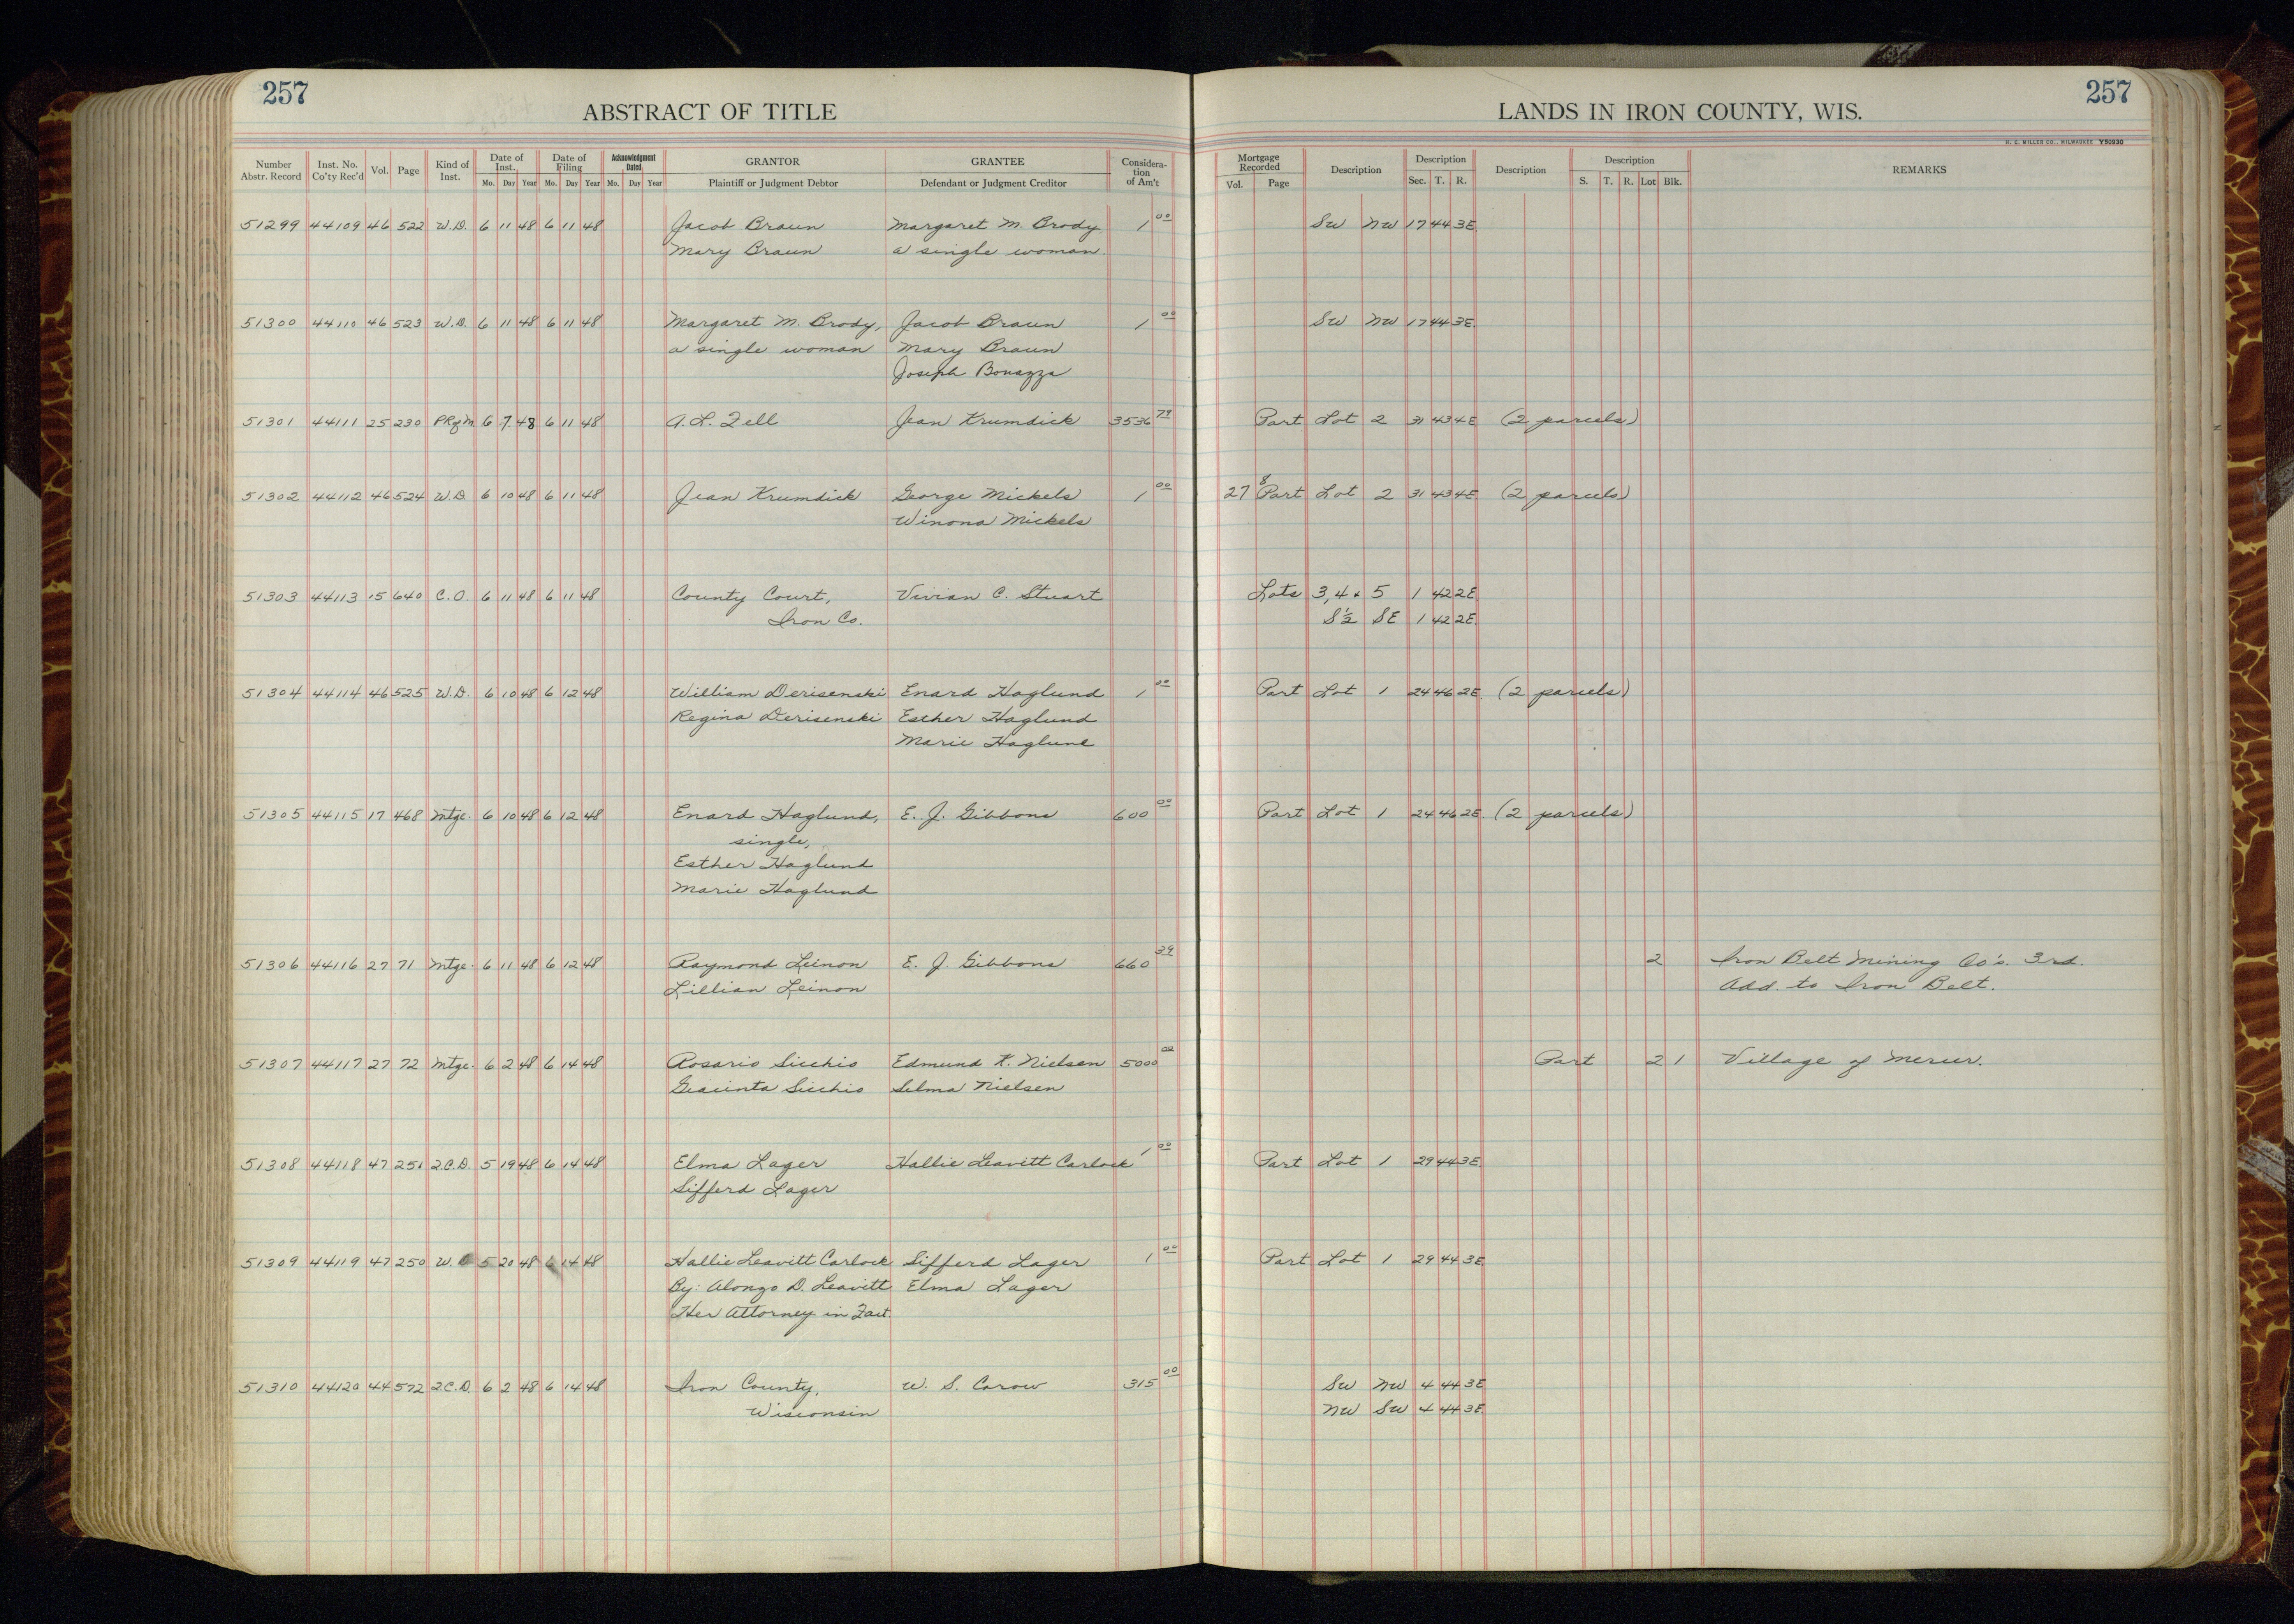 257
257
ABSTRACT OF TITLE
LANDS IN IRON COUNTY, WIS.
H. C. MILLER CO., MILWAUKEE Y50930
Number Abstr. Record Inst. No. Co'ty Rec'd Vol. Page Kind of Inst. Date of Inst. Mo. Day Year Date of Filing Mo. Day Year Acknowledgment Dated Mo. Day Year GRANTOR Plaintiff or Judgment Debtor GRANTEE Defendant or Judgment Creditor Considera-tion of Am't Mortgage Recorded Vol. Page Description Description Sec. T. R. Description Description S. T. R. Lot Blk. REMARKS
51299 44109 46 522 W.D. 6 11 48 6 11 48 Jacob Braun Margaret M. Brody 1 00 SW NW 17 44 3E
Mary Braun a single woman.
51300 44110 46 523 W.D. 6 11 48 6 11 48 Margaret M. Brody, Jacob Braun 1 00 SW NW 17 44 3E
a single woman Mary Braun
Joseph Bonazza
51301 44111 25 230 PRgM 6 7 48 6 11 48 A. L. Zell Jean Krumdick 3536 79 Part Lot 2 31 43 4E (2 parcels)
51302 44112 46 524 W.D 6 10 48 6 11 48 Jean Krumdick George Mickels 1 00 27 8 Part Lot 2 31 43 4E (2 parcels)
Winona Mickels
51303 44113 15 640 C.O. 6 11 48 6 11 48 County Court, Vivian C. Stuart Lots 3,4 & 5 1 42 2E
Iron Co. S½ SE 1 42 2E
51304 44114 46 525 W.D. 6 10 48 6 12 48 William Derisenski Enard Haglund 1 00 Part Lot 1 24 46 2E (2 parcels)
Regina Derisenski Esther Haglund
Marie Haglund
51305 44115 17 468 Mtge. 6 10 48 6 12 48 Enard Haglund, E. J. Gibbons 600 00 Part Lot 1 24 46 2E (2 parcels)
single,
Esther Haglund
Marie Haglund
51306 44116 27 71 Mtge. 6 11 48 6 12 48 Raymond Leinon E. J. Gibbons 660 39 2 Iron Belt Mining Co's. 3rd.
Lillian Leinon Add. to Iron Belt.
51307 44117 27 72 Mtge. 6 2 48 6 14 48 Rosario Sicchio Edmund K. Nielsen 5000 00 Part 2 1 Village of Mercer.
Giacinta Sicchio Selma Nielsen
51308 44118 47 251 2.C.D. 5 19 48 6 14 48 Elma Lager Hallie Leavitt Carlock 1 00 Part Lot 1 29 44 3E
Sifferd Lager
51309 44119 47 250 W. 5 20 48 6 14 48 Hallie Leavitt Carlock Sifferd Lager 1 00 Part Lot 1 29 44 3E
By: Alonzo D. Leavitt Elma Lager
Her Attorney in Fact.
51310 44120 44 572 2.C.D. 6 2 48 6 14 48 Iron County, W. S. Carow 315 00 SW NW 4 44 3E
Wisconsin NW SW 4 44 3E